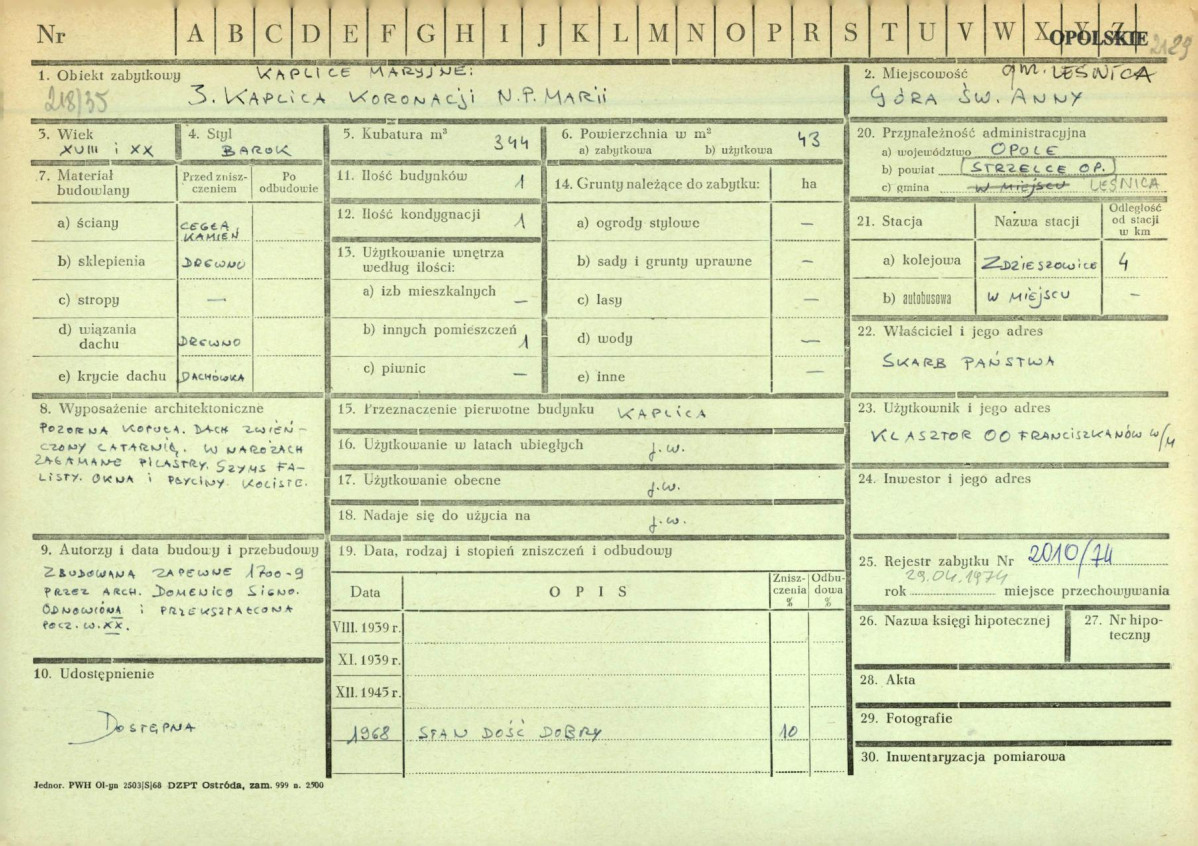 Nr A B C D E F G H I J K L M N O P R S T U V W X Y Z OPOLSKIE 2129
1. Obiekt zabytkowy KAPLICE MARYJNE:
218/35 3. KAPLICA KORONACJI N.P. MARII
2. Miejscowość gm. LEŚNICA
GÓRA ŚW. ANNY
3. Wiek
XVIII i XX
4. Styl
BAROK
5. Kubatura m³ 344
6. Powierzchnia w m² 43
a) zabytkowa b) użytkowa
7. Materiał budowlany
Przed zniszczeniem
Po odbudowie
a) ściany CEGŁA KAMIEŃ
b) sklepienia DREWNO
c) stropy —
d) wiązania dachu DREWNO
e) krycie dachu DACHÓWKA
11. Ilość budynków 1
12. Ilość kondygnacji 1
13. Użytkowanie wnętrza
według ilości:
a) izb mieszkalnych —
b) innych pomieszczeń 1
c) piwnic —
14. Grunty należące do zabytku: ha
a) ogrody stylowe —
b) sady i grunty uprawne —
c) lasy —
d) wody —
e) inne
20. Przynależność administracyjna
a) województwo OPOLE
b) powiat STRZELCE OP.
c) gmina W MIEJSCU LEŚNICA
21. Stacja
Nazwa stacji
Odległość od stacji w km
a) kolejowa ZDZIESZOWICE 4
b) autobusowa W MIEJSCU —
22. Właściciel i jego adres
SKARB PAŃSTWA
8. Wyposażenie architektoniczne
POZORNA KOPUŁA. DACH ZWIEŃ-
CZONY LATARNIĄ. W NAROŻACH
ZAŁAMANE PILASTRY. SZYMS FA-
LISTY. OKNA I PŁYCINY KOLISTE.
15. Przeznaczenie pierwotne budynku KAPLICA
16. Użytkowanie w latach ubiegłych j.w.
17. Użytkowanie obecne j.w.
18. Nadaje się do użycia na j.w.
23. Użytkownik i jego adres
KLASZTOR OO FRANCISZKANÓW W/M
24. Inwestor i jego adres
9. Autorzy i data budowy i przebudowy
ZBUDOWANA ZAPEWNE 1700-9
PRZEZ ARCH. DOMENICO SIGNO.
ODNOWIONA I PRZEKSZTAŁCONA
POCZ. W. XX.
10. Udostępnienie
DOSTĘPNA
19. Data, rodzaj i stopień zniszczeń i odbudowy
Data
OPIS
Zniszczenia %
Odbudowa %
VIII. 1939 r.
XI. 1939 r.
XII. 1945 r.
1968 STAN DOŚĆ DOBRY 10
25. Rejestr zabytku Nr 2010/74
29.04.1974
rok miejsce przechowywania
26. Nazwa księgi hipotecznej
27. Nr hipoteczny
28. Akta
29. Fotografie
30. Inwentaryzacja pomiarowa
Jednor. PWH Ol-yn 2503|S|68 DZPT Ostróda, zam. 999 n. 2500